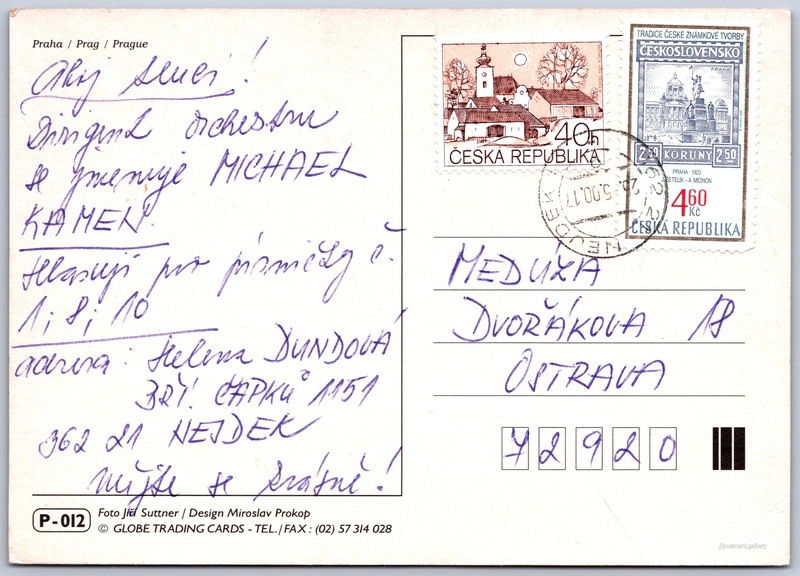 Praha / Prag / Prague
Ahoj kluci!
Dirigent orchestru
se jmenuje MICHAEL
KAMEN.
Hlasuji pro písničky č.
1; 8; 10
adresa: Helena DUNDOVÁ
BŘÍ. ČAPKŮ 1151
362 21 NEJDEK
Mějte se krásně!
P-012
Foto Jiří Suttner / Design Miroslav Prokop
© GLOBE TRADING CARDS - TEL./FAX : (02) 57 314 028
40h
ČESKÁ REPUBLIKA
TRADICE ČESKÉ ZNÁMKOVÉ TVORBY
ČESKOSLOVENSKO
PRAHA
2 50 KORUNY 2 50
PRAHA · 1929
SETELÍK - A. MIGNON
4 60
Kč
ČESKÁ REPUBLIKA
NEJDEK
MEDÚZA
DVOŘÁKOVA 18
OSTRAVA
72920